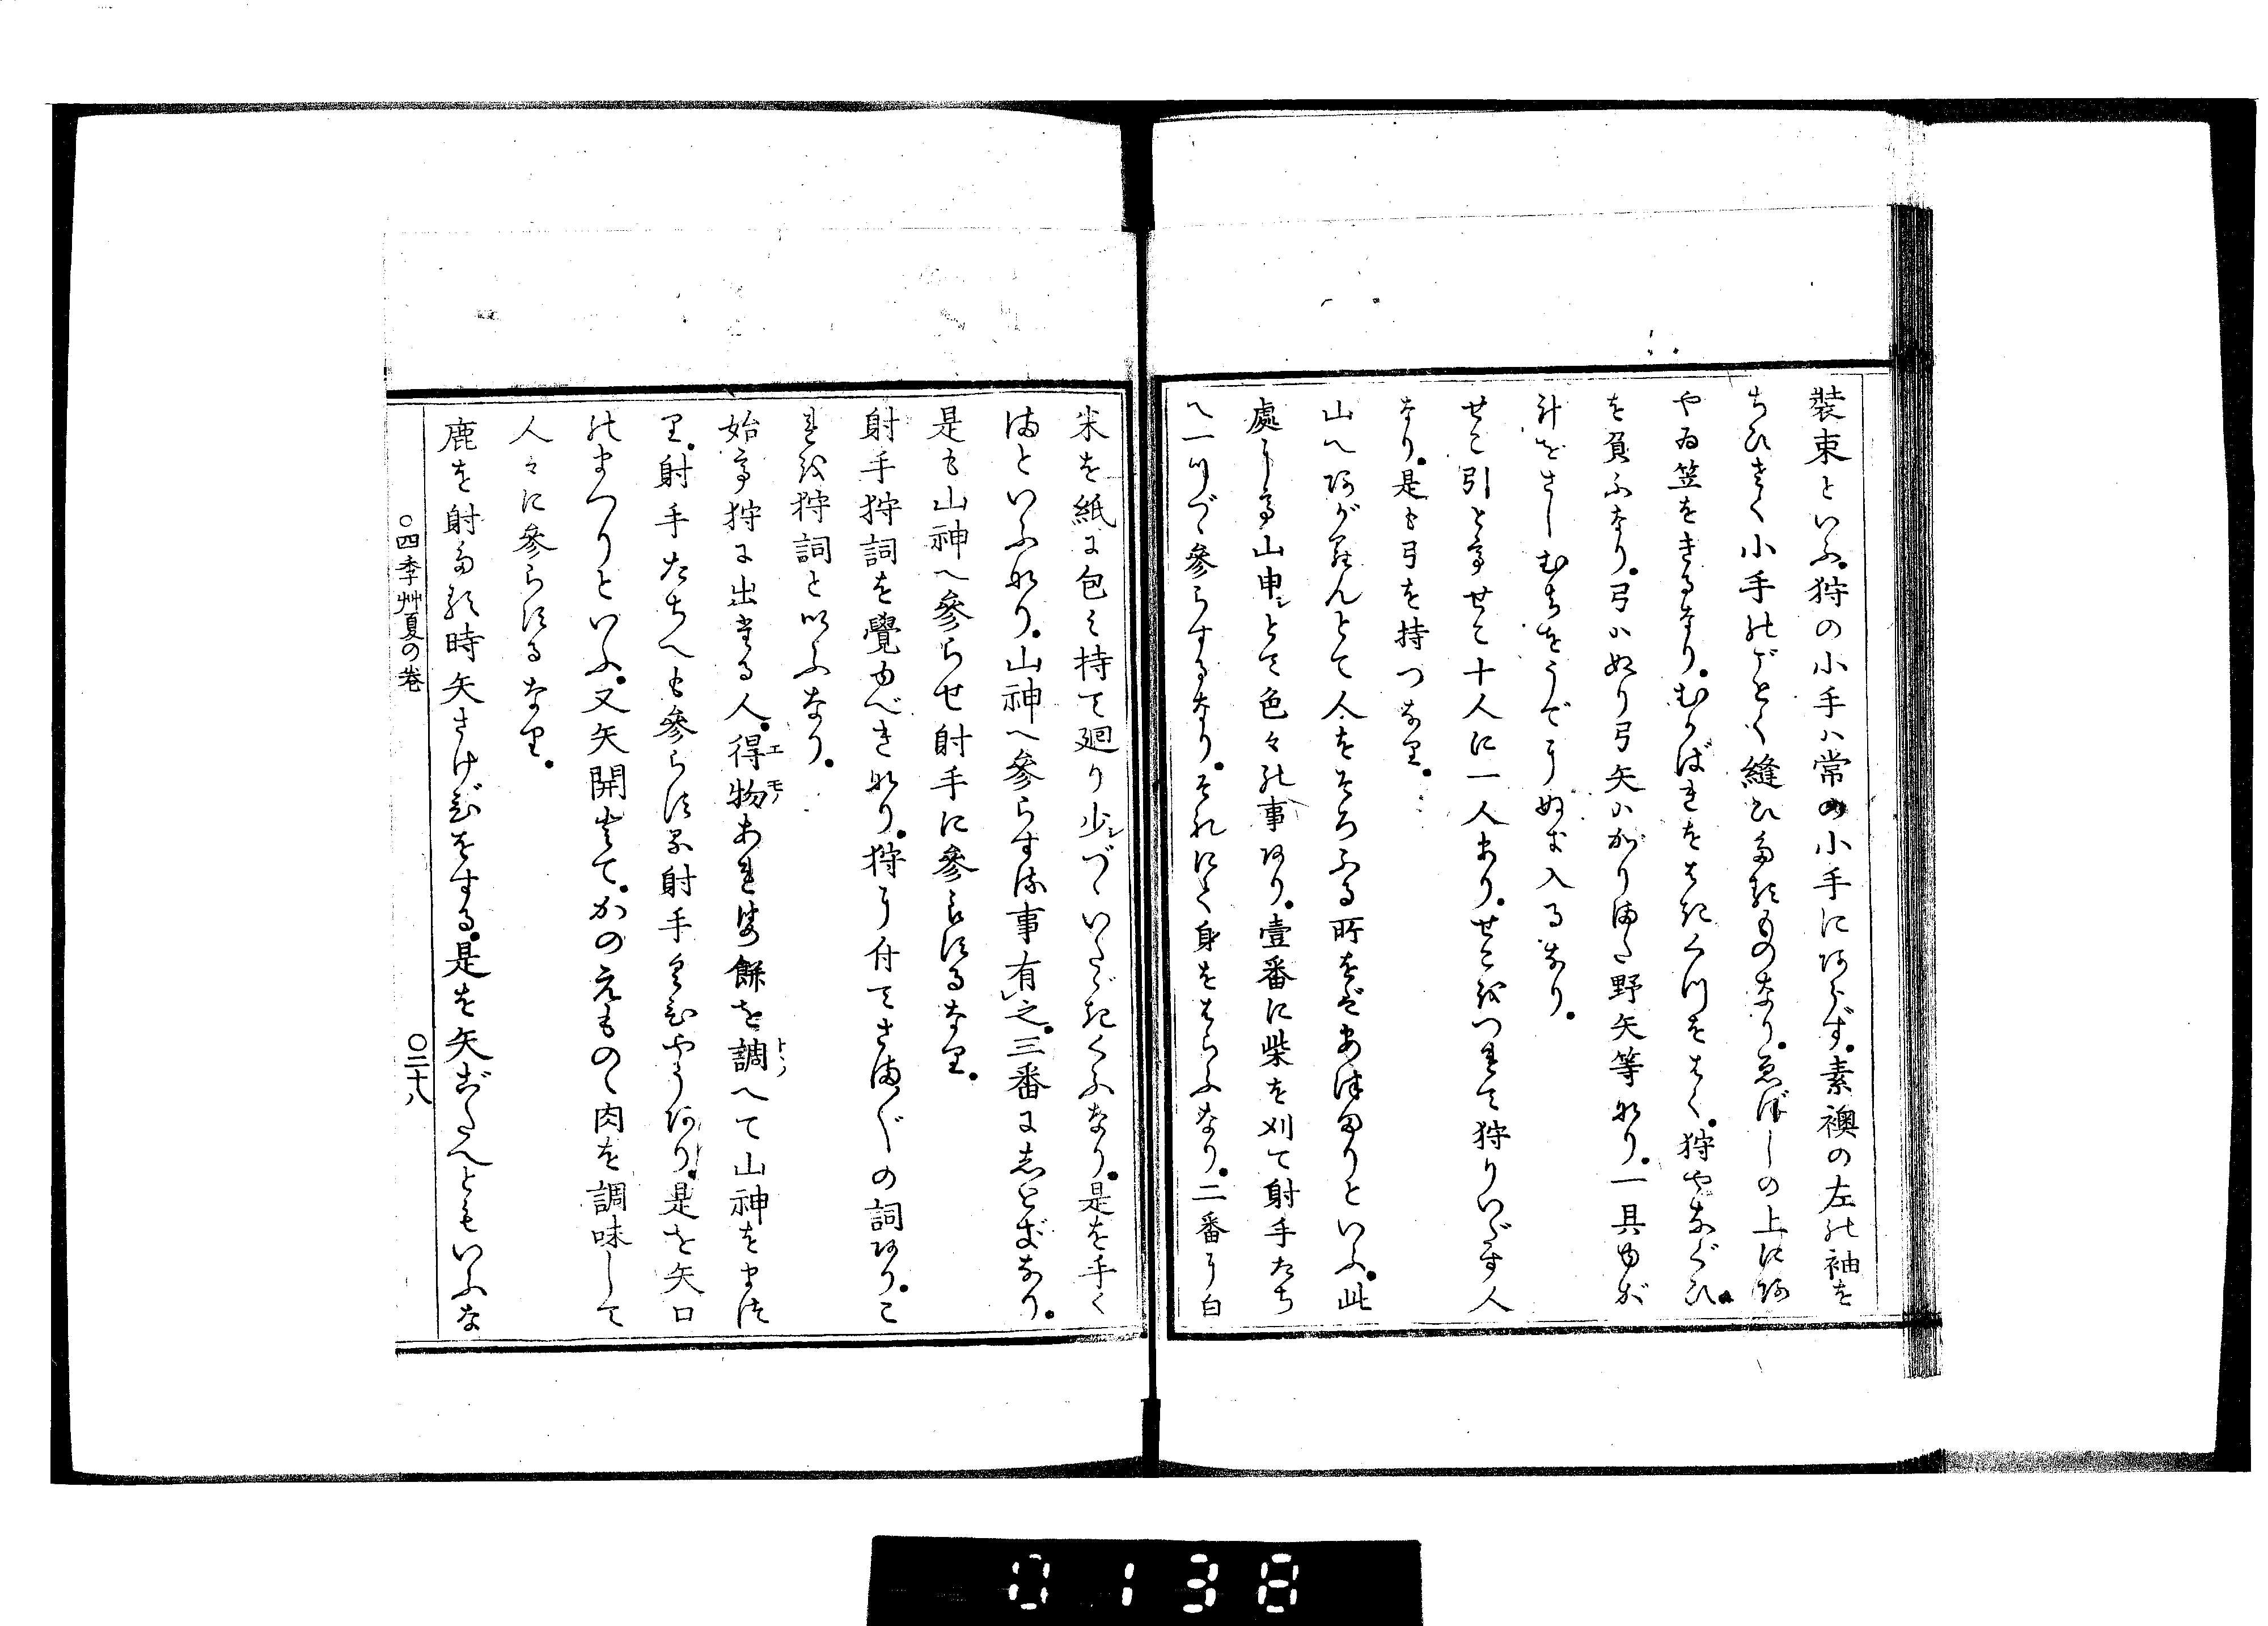 裝束といふ。狩の小手ハ常の小手にあらず。素襖の左の袖を
ちひさく小手のごとく縫ひたるものなり。ゑぼしの上にあ
やゐ笠をきるなり。むかばきをはきくつをはく。狩やなぐひ
を負ふなり。弓ハぬり弓矢ハかりまた野矢等なり。一具ゆが
けをさしむちをうでにぬき入るなり。
せこ引とてせこ十人に一人あり。せこをつれて狩りいだす人
なり。是も弓を持つなり。
山へあがらんとて人をそろふる所をばあつまりといふ。此
處にて山申シとて色々の事あり。壹番に柴を刈て射手たち
へ一ツづゝ參らするなり。それにて身をはらふなり。二番に白
米を紙に包ミ持て廻り少シづゝいたゞきくふなり。是を手く
まといふなり。山神へ參らする事有レ之。三番にしとぎなり。
是も山神へ參らせ射手に參らするなり。
射手狩詞を覺ゆべき也。狩に付てさま〲の詞あり。こ
れを狩詞といふなり。
始て狩に出たる人。得物エモノあれば餅を調トヽノへて山神をまつ
り。射手たちへも參らする。射手くひやうあり。是を矢口
のまつりといふ。又矢開きとて。かのえものゝ肉を調味して
人々に參らするなり。
鹿を射たる時矢さけびをする。是を矢ごたへともいふな
○四季艸夏の卷　○二十八
0138